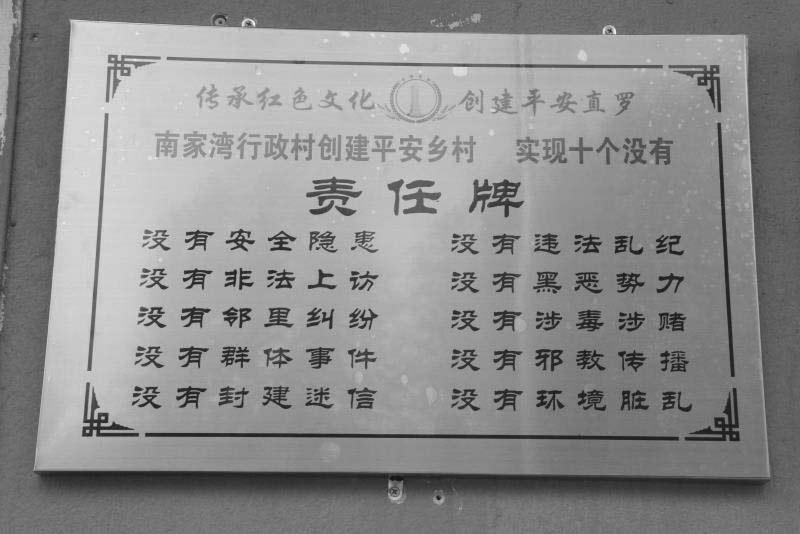 传承红色文化 创建平安直罗
南家湾行政村创建平安乡村 实现十个没有
责任牌
没有安全隐患 没有违法乱纪
没有非法上访 没有黑恶势力
没有邻里纠纷 没有涉毒涉赌
没有群体事件 没有邪教传播
没有封建迷信 没有环境脏乱